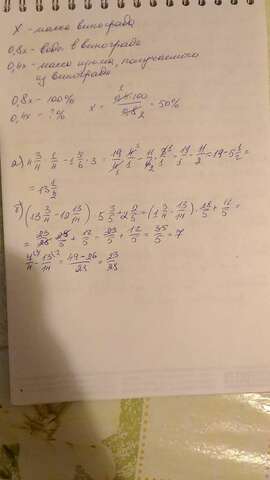 х - масса винограда
0,8х - воды в винограде
0,4х - масса изюма, получаемого
из винограда
0,8х - 100%
0,4х - ?%
х = 0,4·100 / 0,8 = 50%
а) 4 3/4 · 4/1 - 1 5/6 · 3 = 19/4 · 4/1 - 11/6 · 3/1 = 19/1 - 11/2 = 19 - 5 1/2 =
= 13 1/2
б) (13 3/4 - 12 13/14) · 5 3/5 + 2 2/5 = (1 3/4 - 13/14) · 28/5 + 12/5 =
= 23/28 · 28/5 + 12/5 = 23/5 + 12/5 = 35/5 = 7
7/4 - 13/14 = 49-26/28 = 23/28